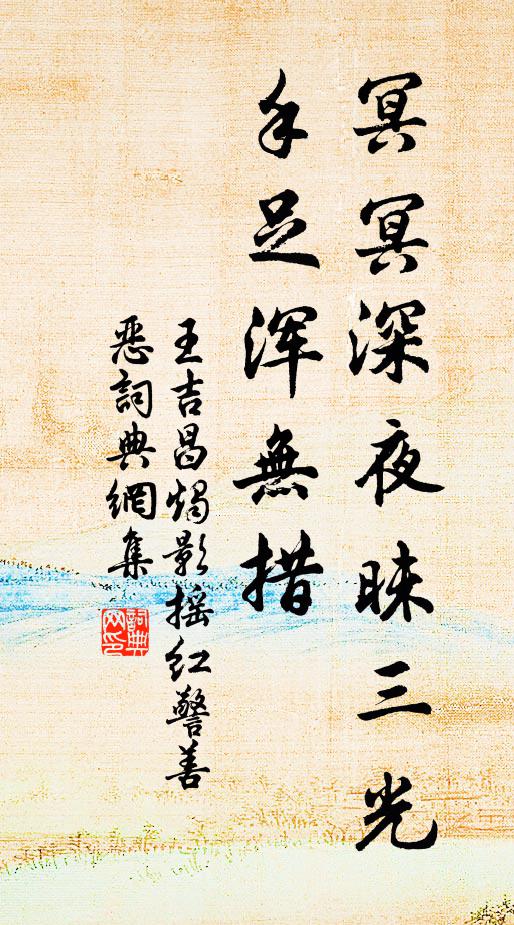 冥冥深夜昧三光
手足浑無措
王吉昌燭影摇红警善
恶詞典網集
詞典
网印